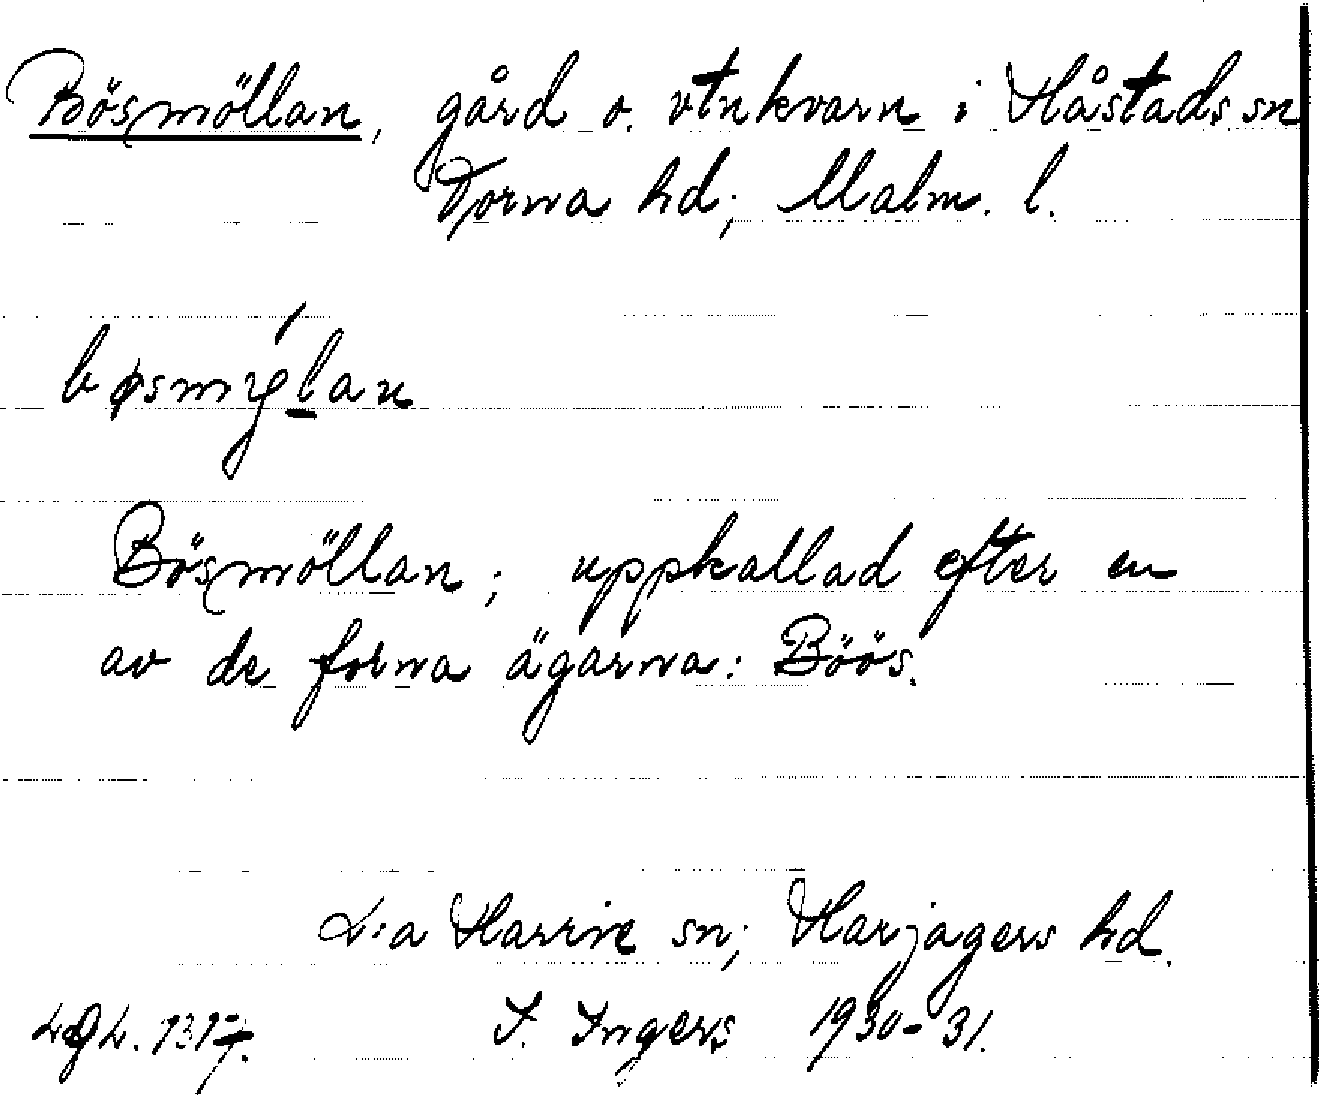 Bösmöllan, gård o. vtnkvarn i Håstads sn
Torna hd; Malm. l.
bøsmýlan
Bösmöllan; uppkallad efter en
av de forna ägarna: Böös.
L:a Harrie sn; Harjagers hd.
I. Ingers 1930-31.